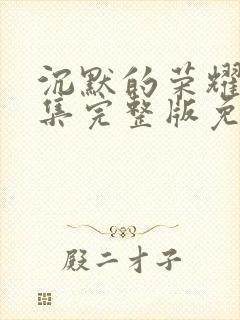 沉默的荣耀
集完整版免
殿二才子